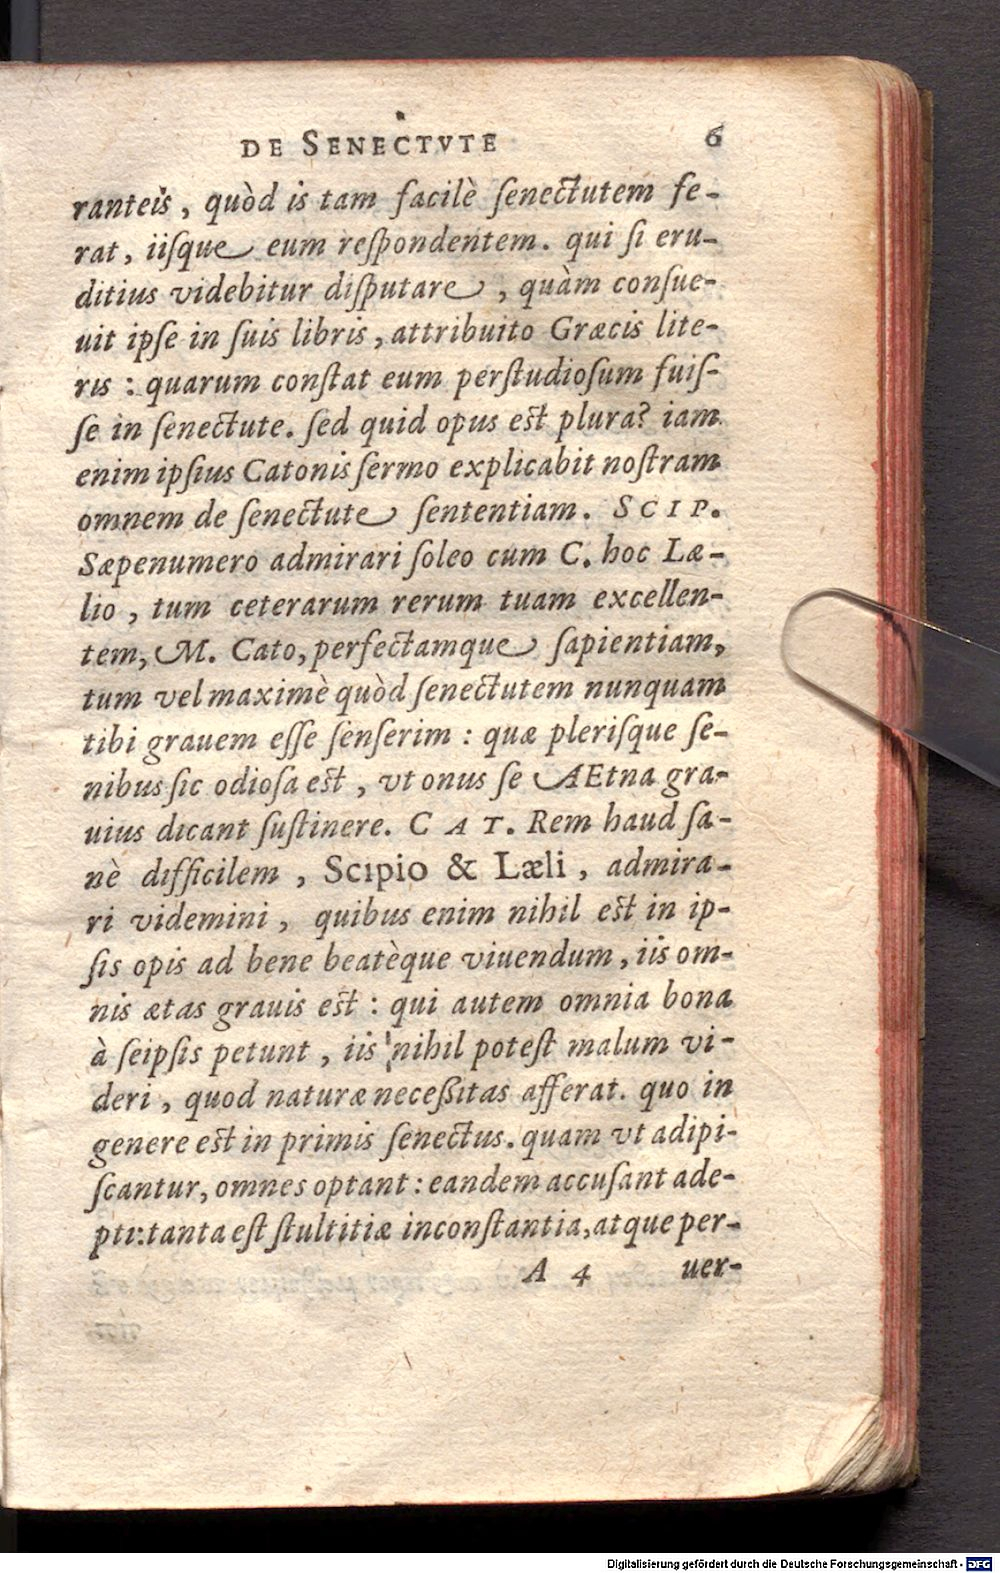 DE SENECTVTE 6
ranteis, quòd is tam facilè ſenectutem fe-
rat, iiſque eum reſpondentem. qui ſi eru-
ditius videbitur diſputare, quàm conſue-
uit ipſe in ſuis libris, attribuito Græcis lite-
ris: quarum conſtat eum perſtudioſum fuiſ-
ſe in ſenectute. ſed quid opus eſt plura? iam
enim ipſius Catonis ſermo explicabit noſtram
omnem de ſenectute ſententiam. SCIP.
Sæpenumero admirari ſoleo cum C. hoc Læ-
lio, tum ceterarum rerum tuam excellen-
tem, M. Cato, perfectamque ſapientiam,
tum vel maximè quòd ſenectutem nunquam
tibi grauem eſſe ſenſerim: quæ pleriſque ſe-
nibus ſic odioſa eſt, vt onus ſe AEtna gra-
uius dicant ſuſtinere. CAT. Rem haud ſa-
nè difficilem, Scipio & Læli, admira-
ri videmini, quibus enim nihil eſt in ip-
ſis opis ad bene beatèque viuendum, iis om-
nis ætas grauis eſt: qui autem omnia bona
à ſeipſis petunt, iis nihil poteſt malum vi-
deri, quod naturæ neceßitas afferat. quo in
genere eſt in primis ſenectus. quam vt adipi-
ſcantur, omnes optant: eandem accuſant ade-
pti: tanta eſt ſtultitiæ inconſtantia, atque per-
A 4 uer-
Digitalisierung gefördert durch die Deutsche Forschungsgemeinschaft - DFG